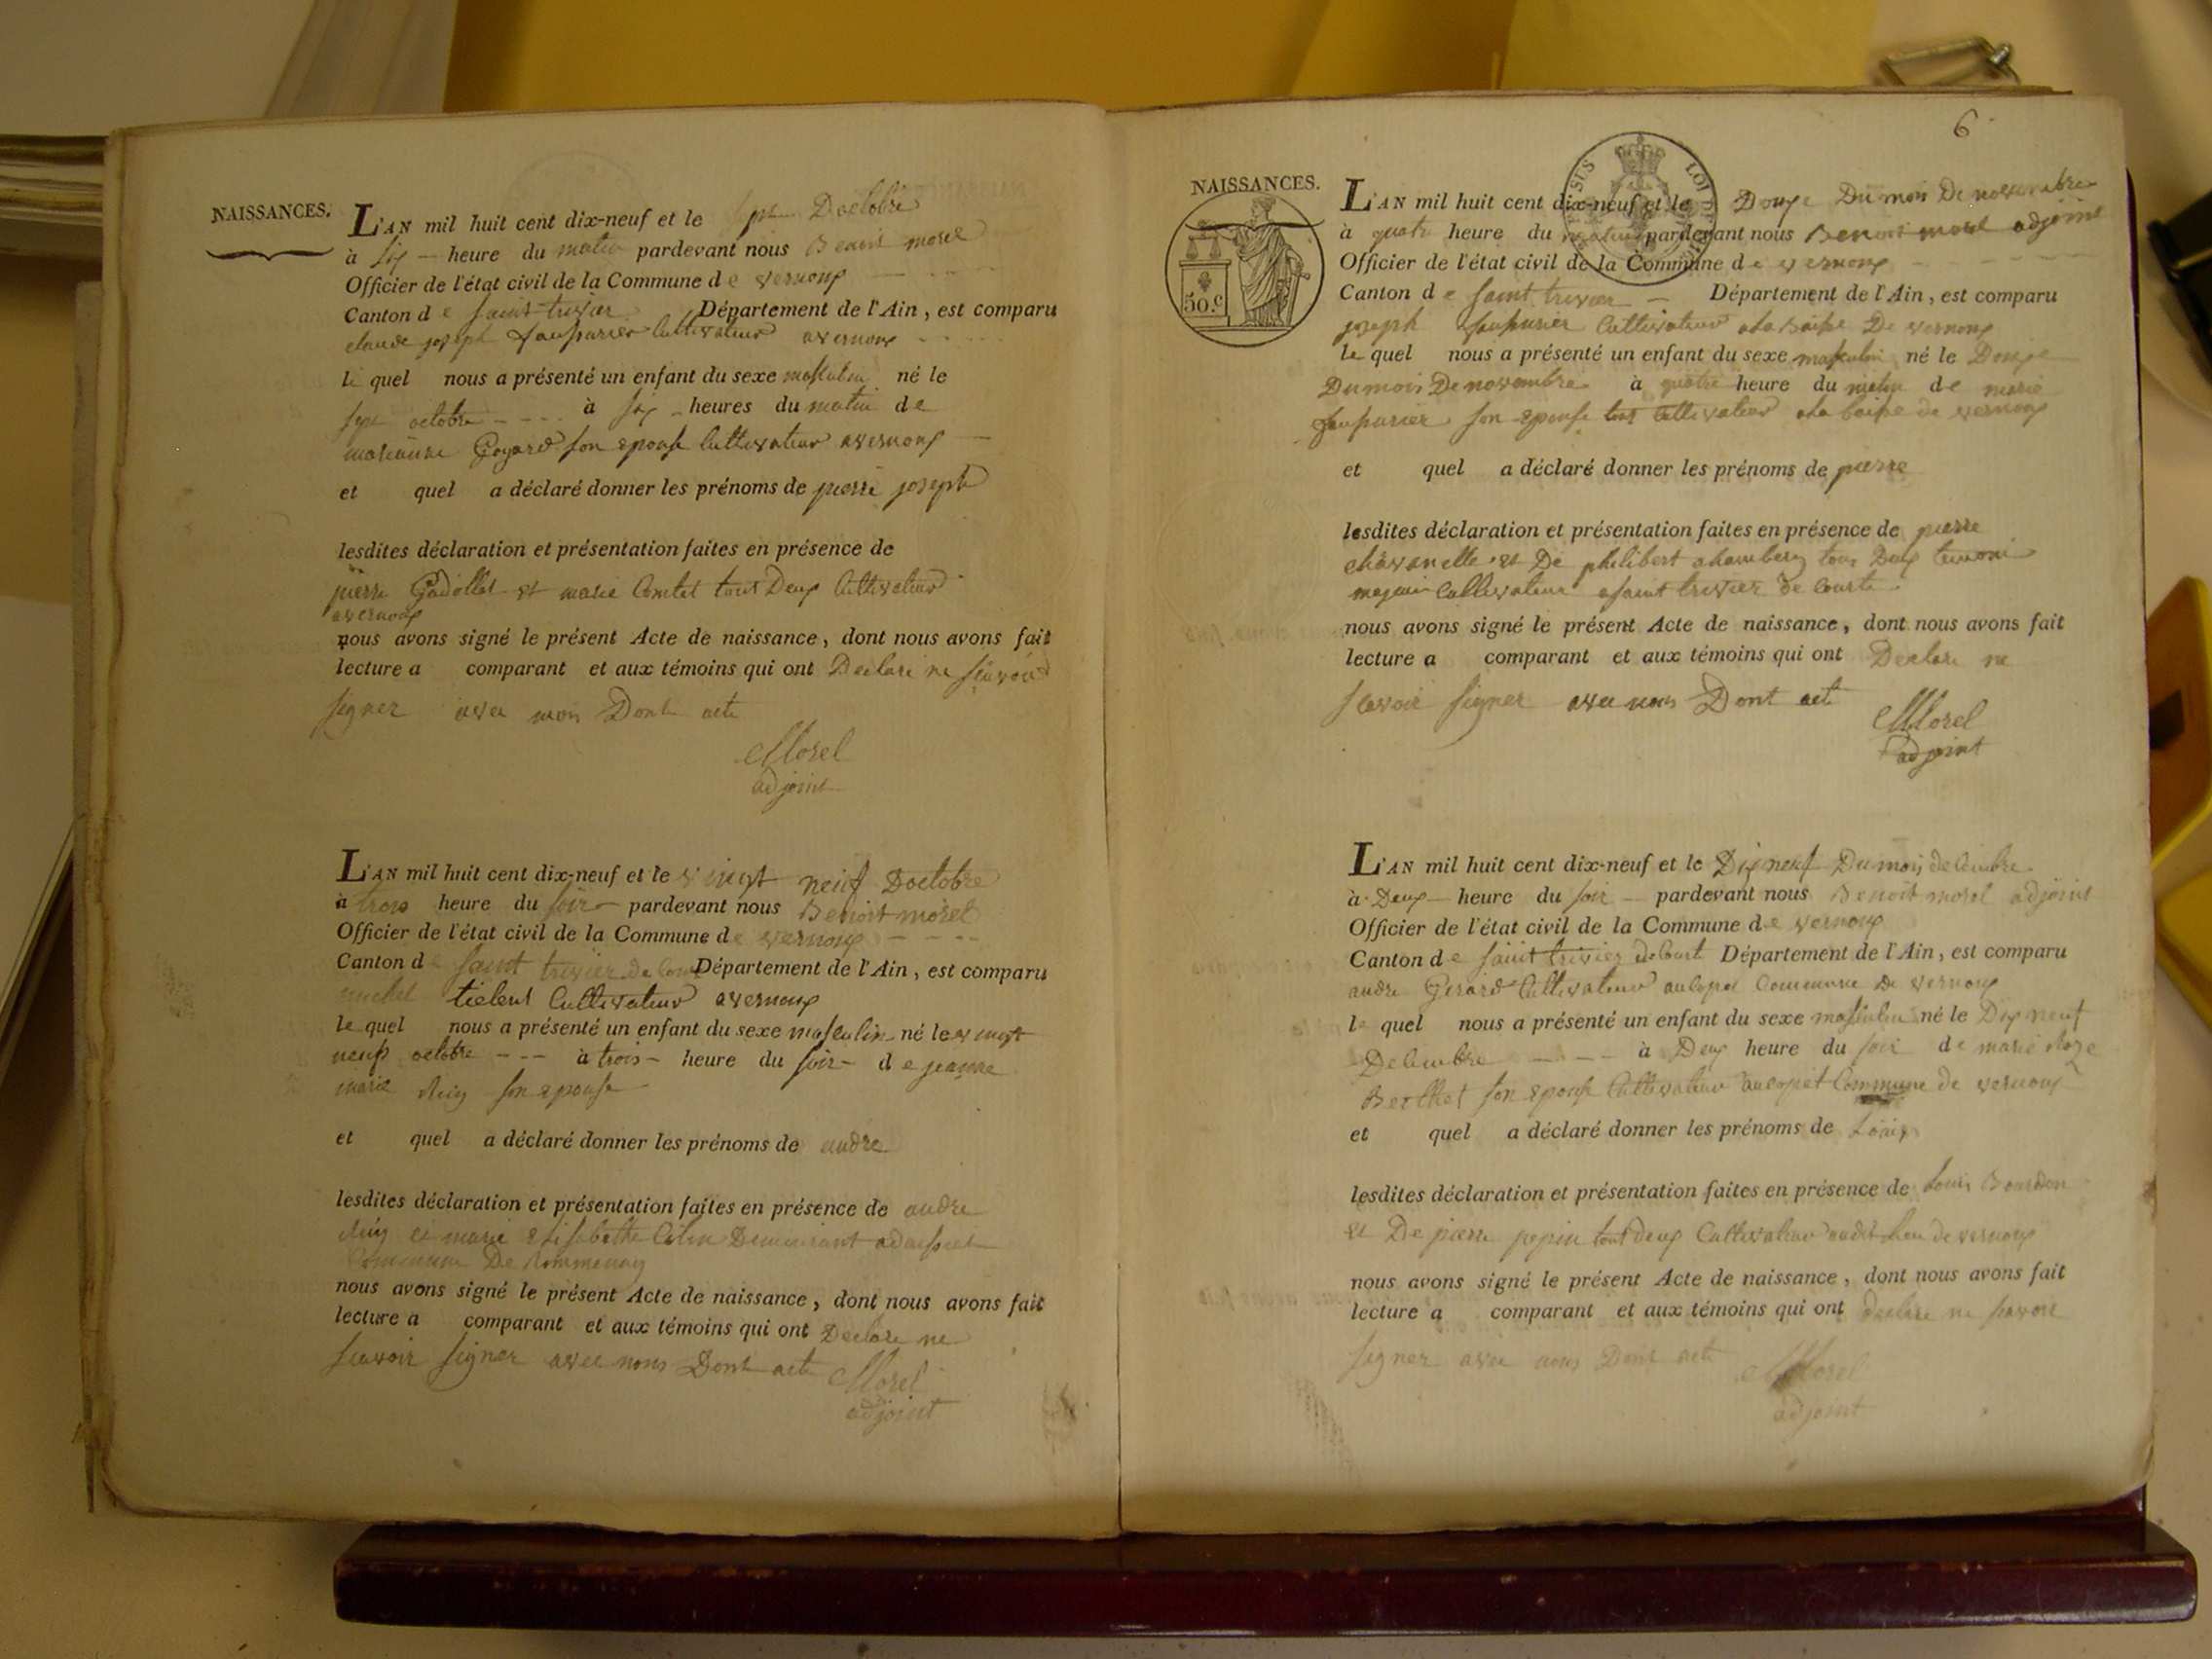 NAISSANCES.
L'AN mil huit cent dix-neuf et le sept Doctobre
à six heure du matin pardevant nous Benoit morel
Officier de l'état civil de la Commune de vernoux
Canton de saint trivier Département de l'Ain, est comparu
claude joseph cultivateur avernoux
le quel nous a présenté un enfant du sexe masculin né le
sept octobre à six heures du matin de
marianne Goyard son epouse cultivateur avernoux
et quel a déclaré donner les prénoms de pierre joseph
lesdites déclaration et présentation faites en présence de
pierre Gadollet et marie Comtet tout Deux Cultivateur
avernoux
nous avons signé le présent Acte de naissance, dont nous avons fait
lecture a comparant et aux témoins qui ont Declare ne scavoir
signer avec nous Dont acte
Morel
adjoint
L'AN mil huit cent dix-neuf et le vingt neuf Doctobre
à trois heure du soir pardevant nous Benoit morel
Officier de l'état civil de la Commune de vernoux
Canton de saint trivier de Département de l'Ain, est comparu
michel cultivateur avernoux
le quel nous a présenté un enfant du sexe masculin né le vingt
neuf octobre à trois heure du soir de jeanne
marie son epouse
et quel a déclaré donner les prénoms de andre
lesdites déclaration et présentation faites en présence de andre
et marie Demeurant
Commune De Rommenay
nous avons signé le présent Acte de naissance, dont nous avons fait
lecture a comparant et aux témoins qui ont Declare ne
scavoir signer avec nous Dont acte Morel
adjoint
6
NAISSANCES.
50.c
L'AN mil huit cent dix-neuf et le Douze Du mois De novembre
à quatre heure du matin pardevant nous Benoit morel adjoint
Officier de l'état civil de la Commune de vernoux
Canton de saint trivier Département de l'Ain, est comparu
joseph cultivateur De vernoux
le quel nous a présenté un enfant du sexe masculin né le Douze
Du mois De novembre à quatre heure du matin de marie
son epouse tous cultivateur de vernoux
et quel a déclaré donner les prénoms de pierre
lesdites déclaration et présentation faites en présence de pierre
chavanelle et De philibert tous Deux temoin
majeur Cultivateur asaint trivier de courte
nous avons signé le présent Acte de naissance, dont nous avons fait
lecture a comparant et aux témoins qui ont Declare ne
scavoir signer avec nous Dont acte
Morel
adjoint
L'AN mil huit cent dix-neuf et le Dix neuf Du mois decembre
à Deux heure du soir pardevant nous Benoit morel adjoint
Officier de l'état civil de la Commune de vernoux
Canton de saint trivier de court Département de l'Ain, est comparu
andre Gerard Cultivateur Commune De vernoux
le quel nous a présenté un enfant du sexe masculin né le Dix neuf
Decembre à Deux heure du soir de marie
Berthet son epouse Cultivateur aucopet Commune de vernoux
et quel a déclaré donner les prénoms de Louis
lesdites déclaration et présentation faites en présence de Louis Bourdon
et De pierre pepin tout deux Cultivateur audit lieu de vernoux
nous avons signé le présent Acte de naissance, dont nous avons fait
lecture a comparant et aux témoins qui ont declare ne savoir
signer avec nous Dont acte Morel
adjoint